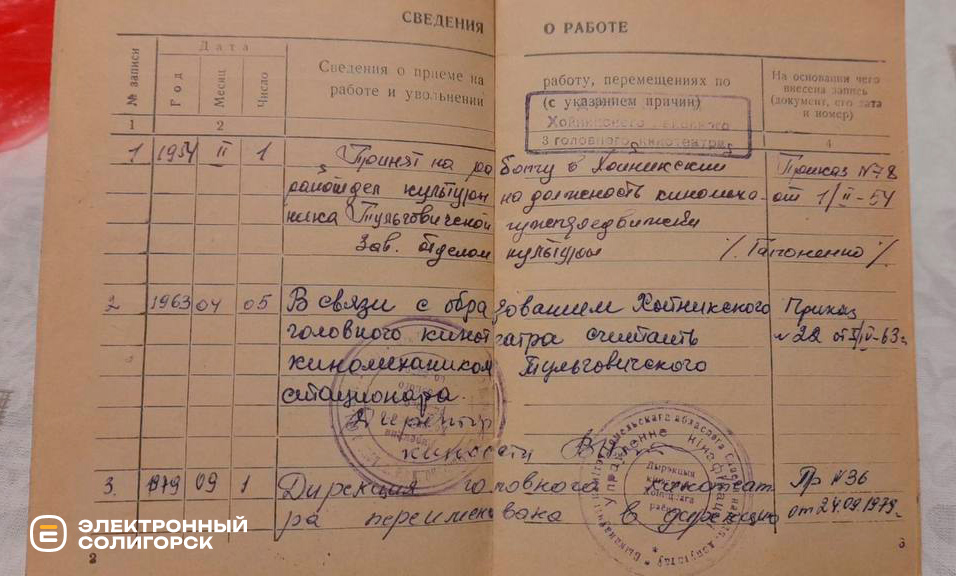 СВЕДЕНИЯ О РАБОТЕ
№ записи
Дата
Год
Месяц
Число
Сведения о приеме на
работе и увольнении
работу, перемещениях по
(с указанием причин)
На основании чего
внесена запись
(документ, его дата
и номер)
1 2 4
Хойникского
3 головного кинотеатра
1 1954 II 1 Принят на работу в Хойникский Приказ N 78
райотдел культуры на должность киномеха- от 1/II-54
ника Тульговичской кинопередвижки
Зав. отделом культуры /Гапоненко/
2 1963 04 05 В связи с образованием Хойникского Приказ
головного кинотеатра считать N 22 от 5/IV-63г.
киномехаником Тульговичского
стационара.
Директор
киносети
3. 1979 09 1 Дирекция головного кинотеат Пр N36
ра переименована в дирекцию от 24.09.1979г.
Дырэкцыя
2
3
ЭЛЕКТРОННЫЙ
СОЛИГОРСК